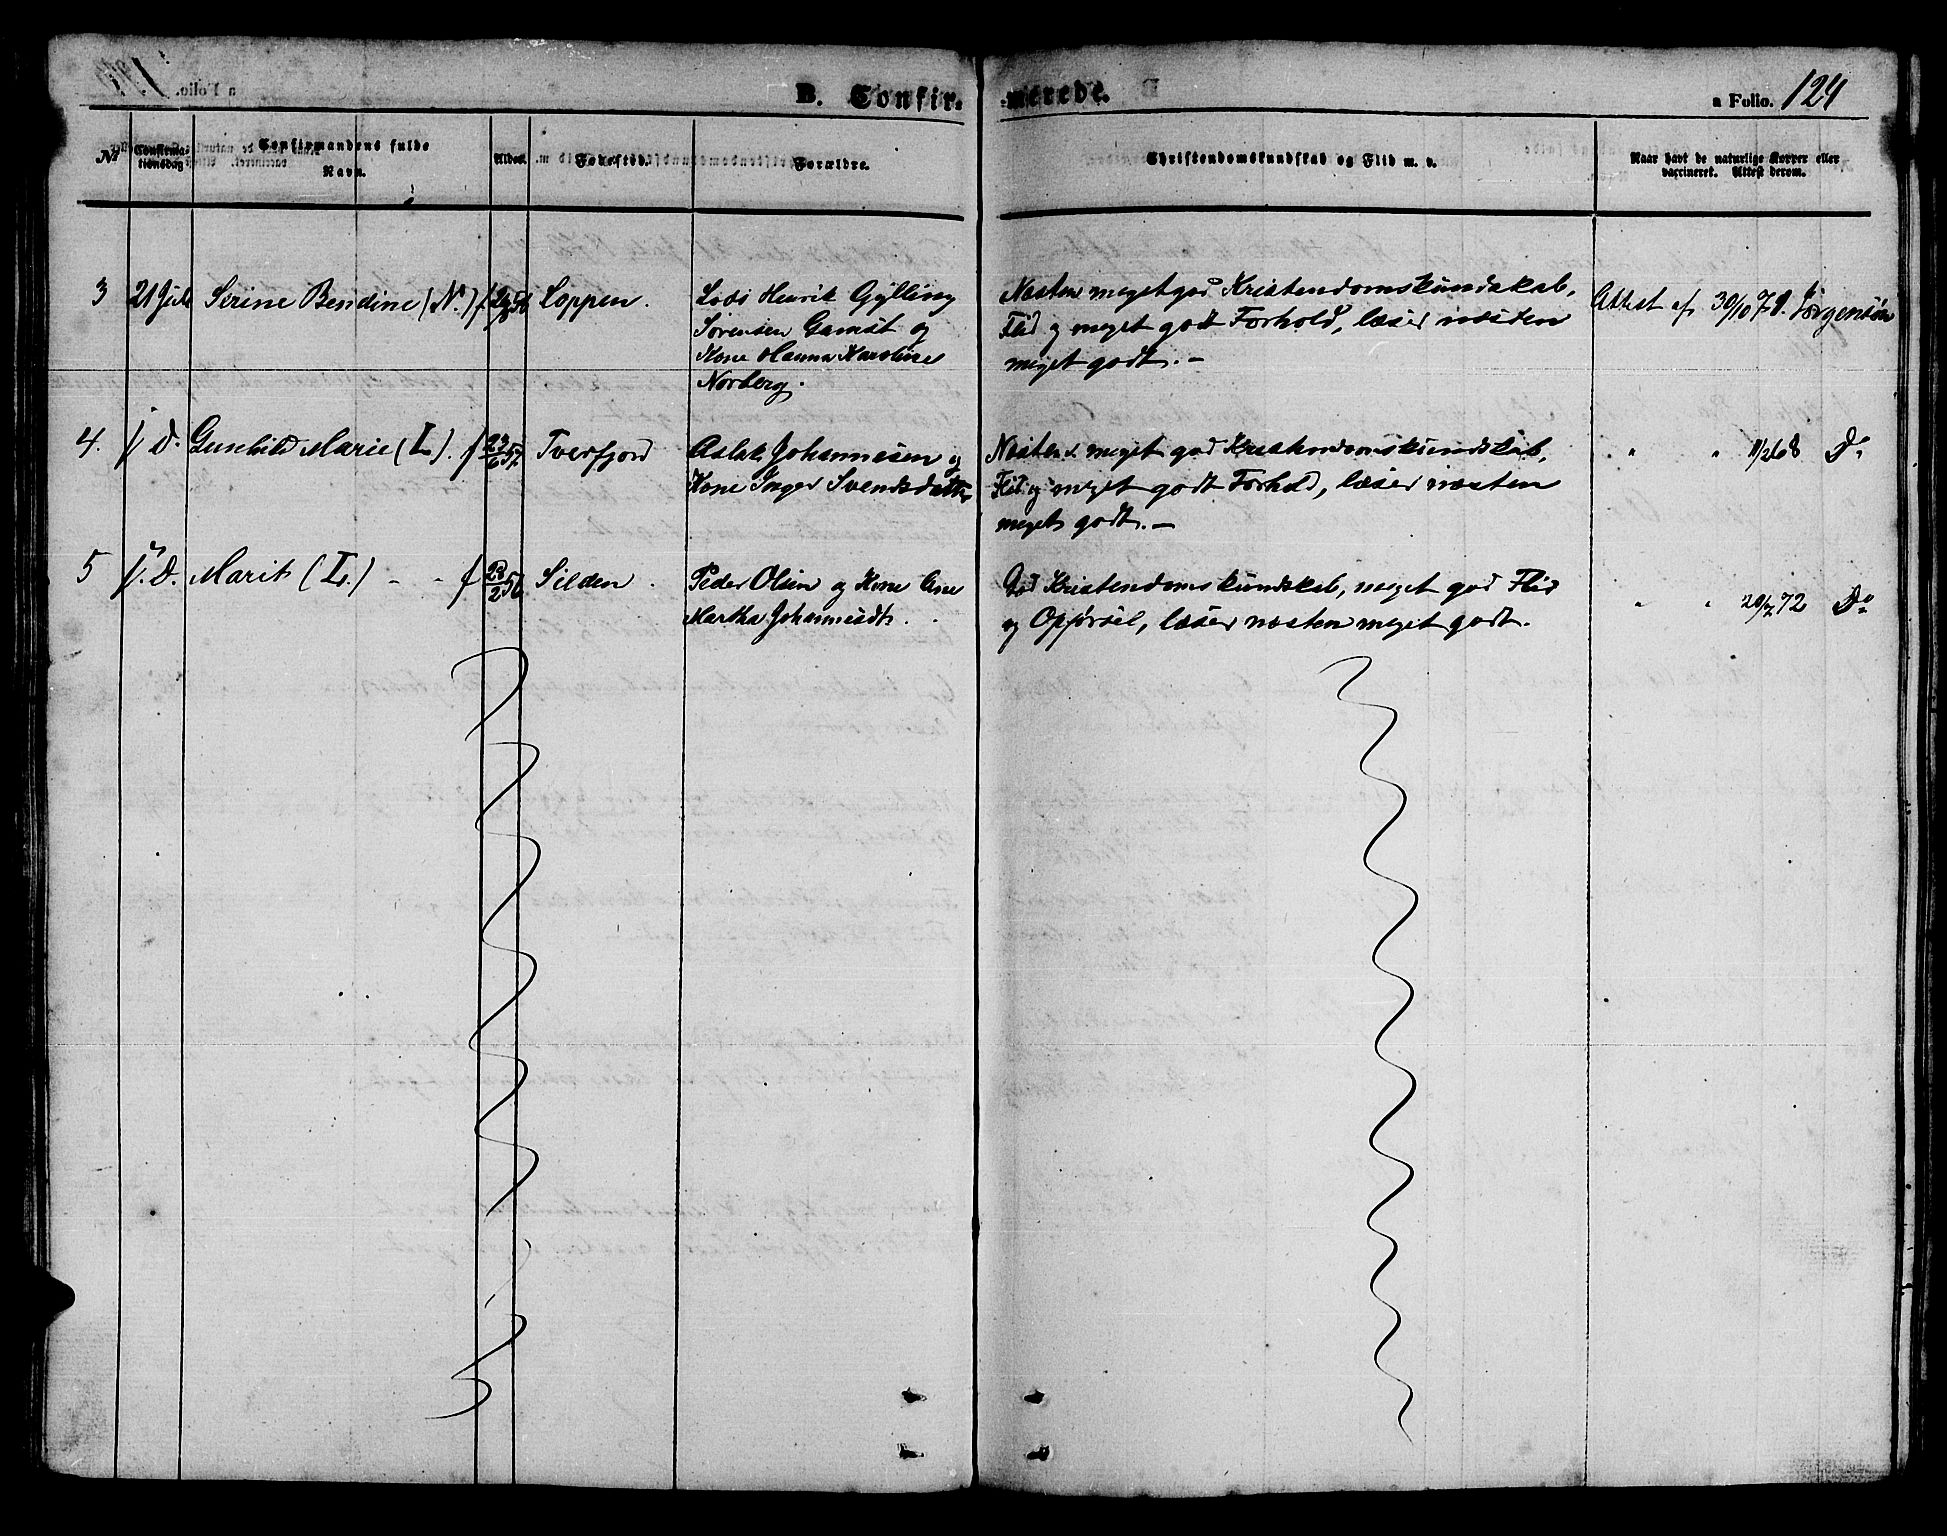 B. Confir-
-merede.
a Folio. 124
No
Confirma-
tionsdag
Confirmandens fulde
Navn.
Alder.
Fødested.
Forældre.
Christendomskundskab og Flid m. v.
Naar havt de naturlige Kopper eller
vaccineret. Attest derom.
3 21 Juli Serine Bendine (N.) f. Loppen.
Henrik Gylling
Sørensen Gamst og
Kone Hanna Karoline
Norberg.
Næsten meget god Kristendomskundskab,
Flid og meget godt Forhold, læser næsten
meget godt. —
Attest af 30/10 71. Jørgensen
4. D. Gunhild Marie (L). f 23/6 57. Tverfjord
Aslak Johannesen og
Kone Inger Svendsdatter
Næsten meget god Kristendomskundskab,
Flid og meget godt Forhold, læser næsten
meget godt. —
" " 11/2 68 Do
5 D. Marit (L.) - - f 28/2 56 Silden.
Peder Olsen og Kone Ane
Martha Johannesdt.
God Kristendomskundskab, meget god Flid
og Opførsel, læser næsten meget godt.
" " 20/7 72 Do